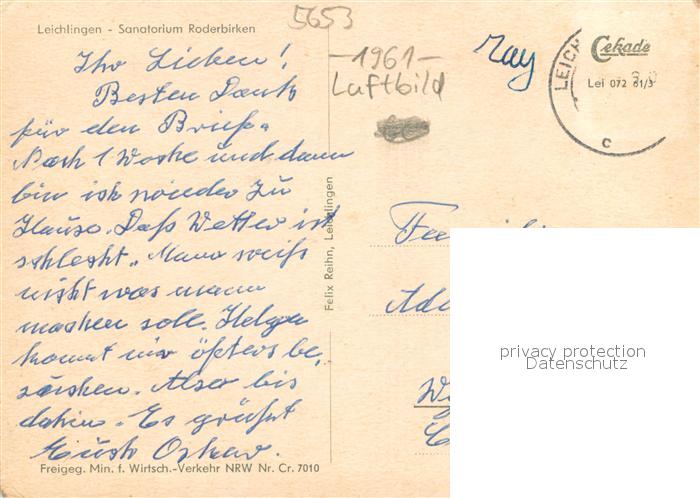 5653
Leichlingen - Sanatorium Roderbirken
Ihr Lieben!
Besten Dank
für den Brief.
Noch 1 Woche und dann
bin ich wieder zu
Hause. Daß Wetter ist
schlecht. Mann weiß
nicht was mann
machen soll. Helga
kommt mir öfters be-
suchen. Also bis
dahin. Es grüßt
Euch Oskar.
Freigeg. Min. f. Wirtsch.-Verkehr NRW Nr. Cr. 7010
-1961-
Luftbild
Felix Reihn, Leichlingen
LEICH
c
Cekade
Lei 072 61/3
privacy protection
Datenschutz